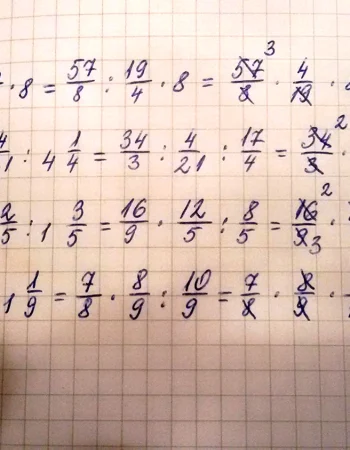 · 8 = 57/8 : 19/4 · 8 = 57/8 3 · 4/19 ·
4/1 : 4 1/4 = 34/3 : 4/21 : 17/4 = 34/3 2 ·
2/5 : 1 3/5 = 16/9 · 12/5 : 8/5 = 16/9 2 3 ·
1 1/9 = 7/8 · 8/9 : 10/9 = 7/8 · 8/9 ·